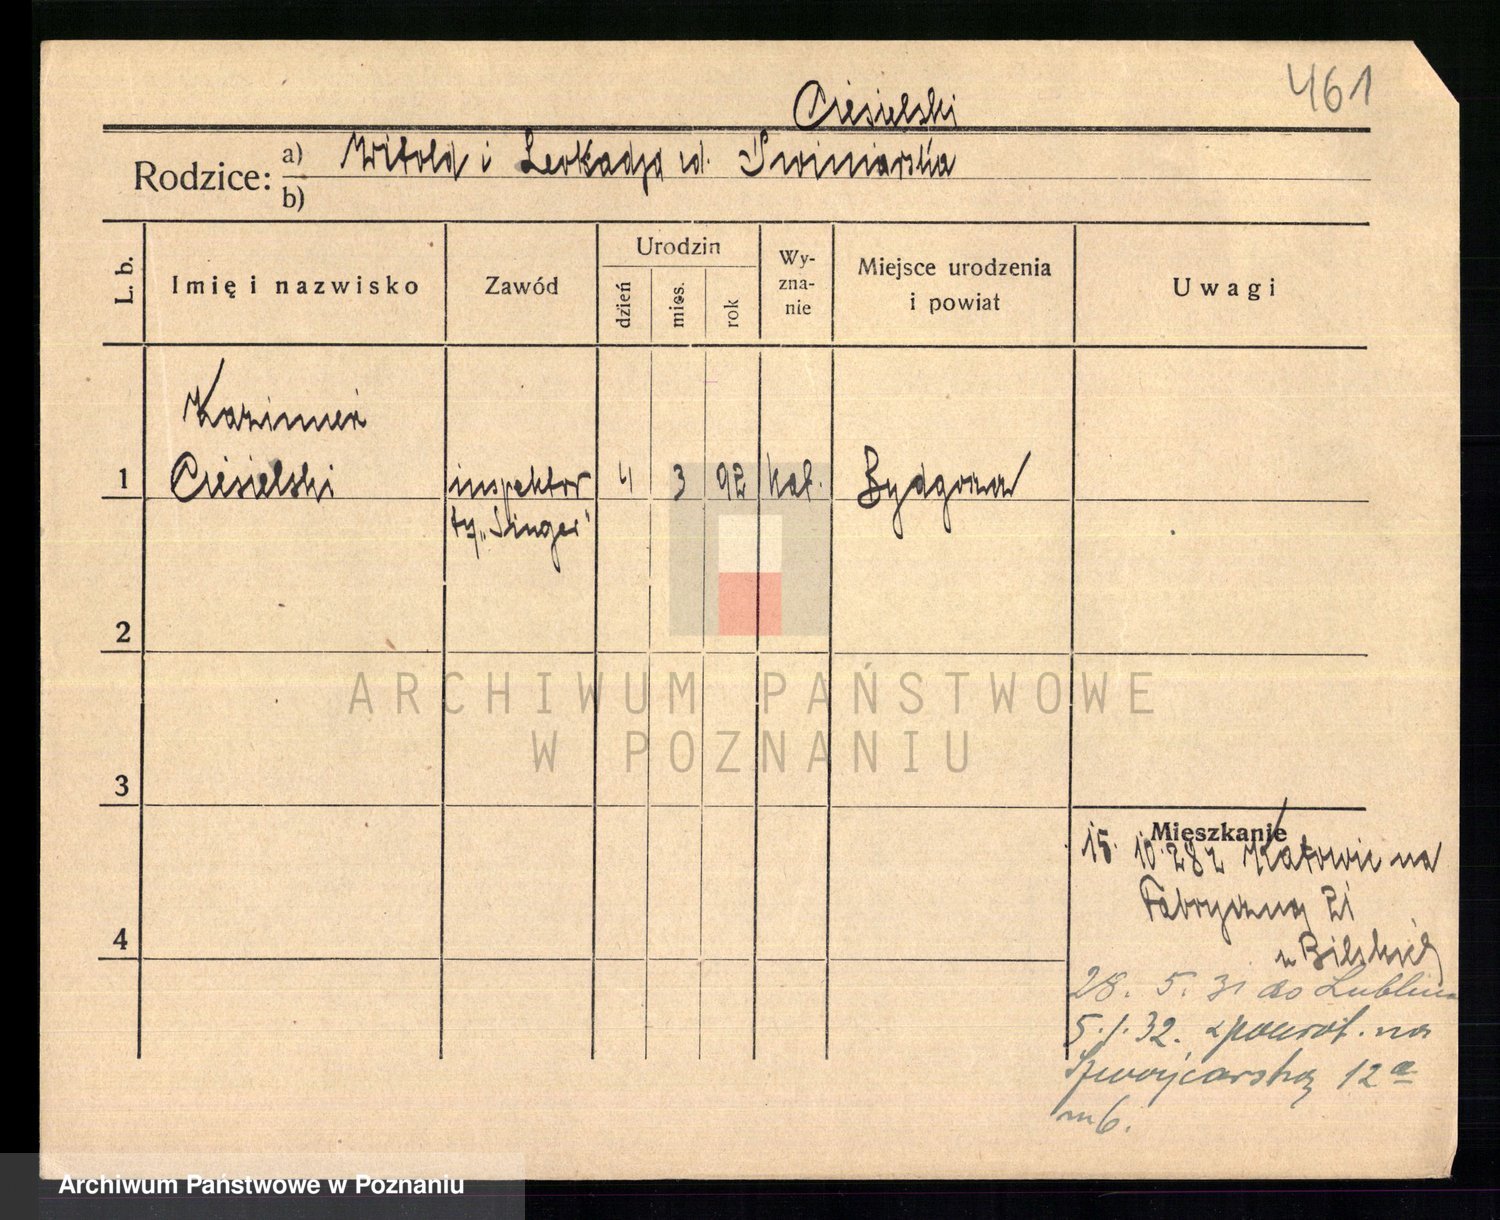 461
Ciesielski
Rodzice: a) Witold i Leokadja zd. Świniarska
b)
L. b. Imię i nazwisko Zawód Urodzin dzień mies. rok Wy-zna-nie Miejsce urodzenia i powiat Uwagi
Kazimierz
1 Ciesielski inspektor 4 3 92 kat. Bydgoszcz
fy „Singer"
2
ARCHIWUM PAŃSTWOWE
W POZNANIU
3
Mieszkanie
15. 10. 28 z Katowic na
Fabryczną 21
u Bilskiej
28. 5. 31 do Lublina
5. 1. 32. z powrot. na
Szwajcarską 12a
m 6.
4
Archiwum Państwowe w Poznaniu